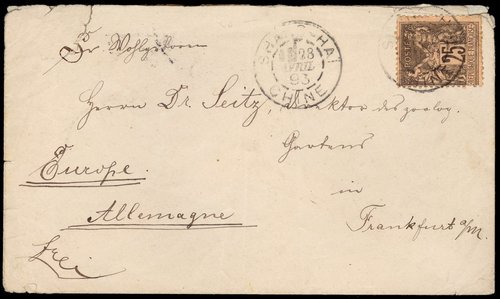 Sr. Wohlgeboren
SHANG-HAI
28
AVRIL
93
CHINE
25
Herrn Dr. Seitz, Direktor des zoolog.
Gartens
Europe.
in
Allemagne
Frankfurt a/M.
frei